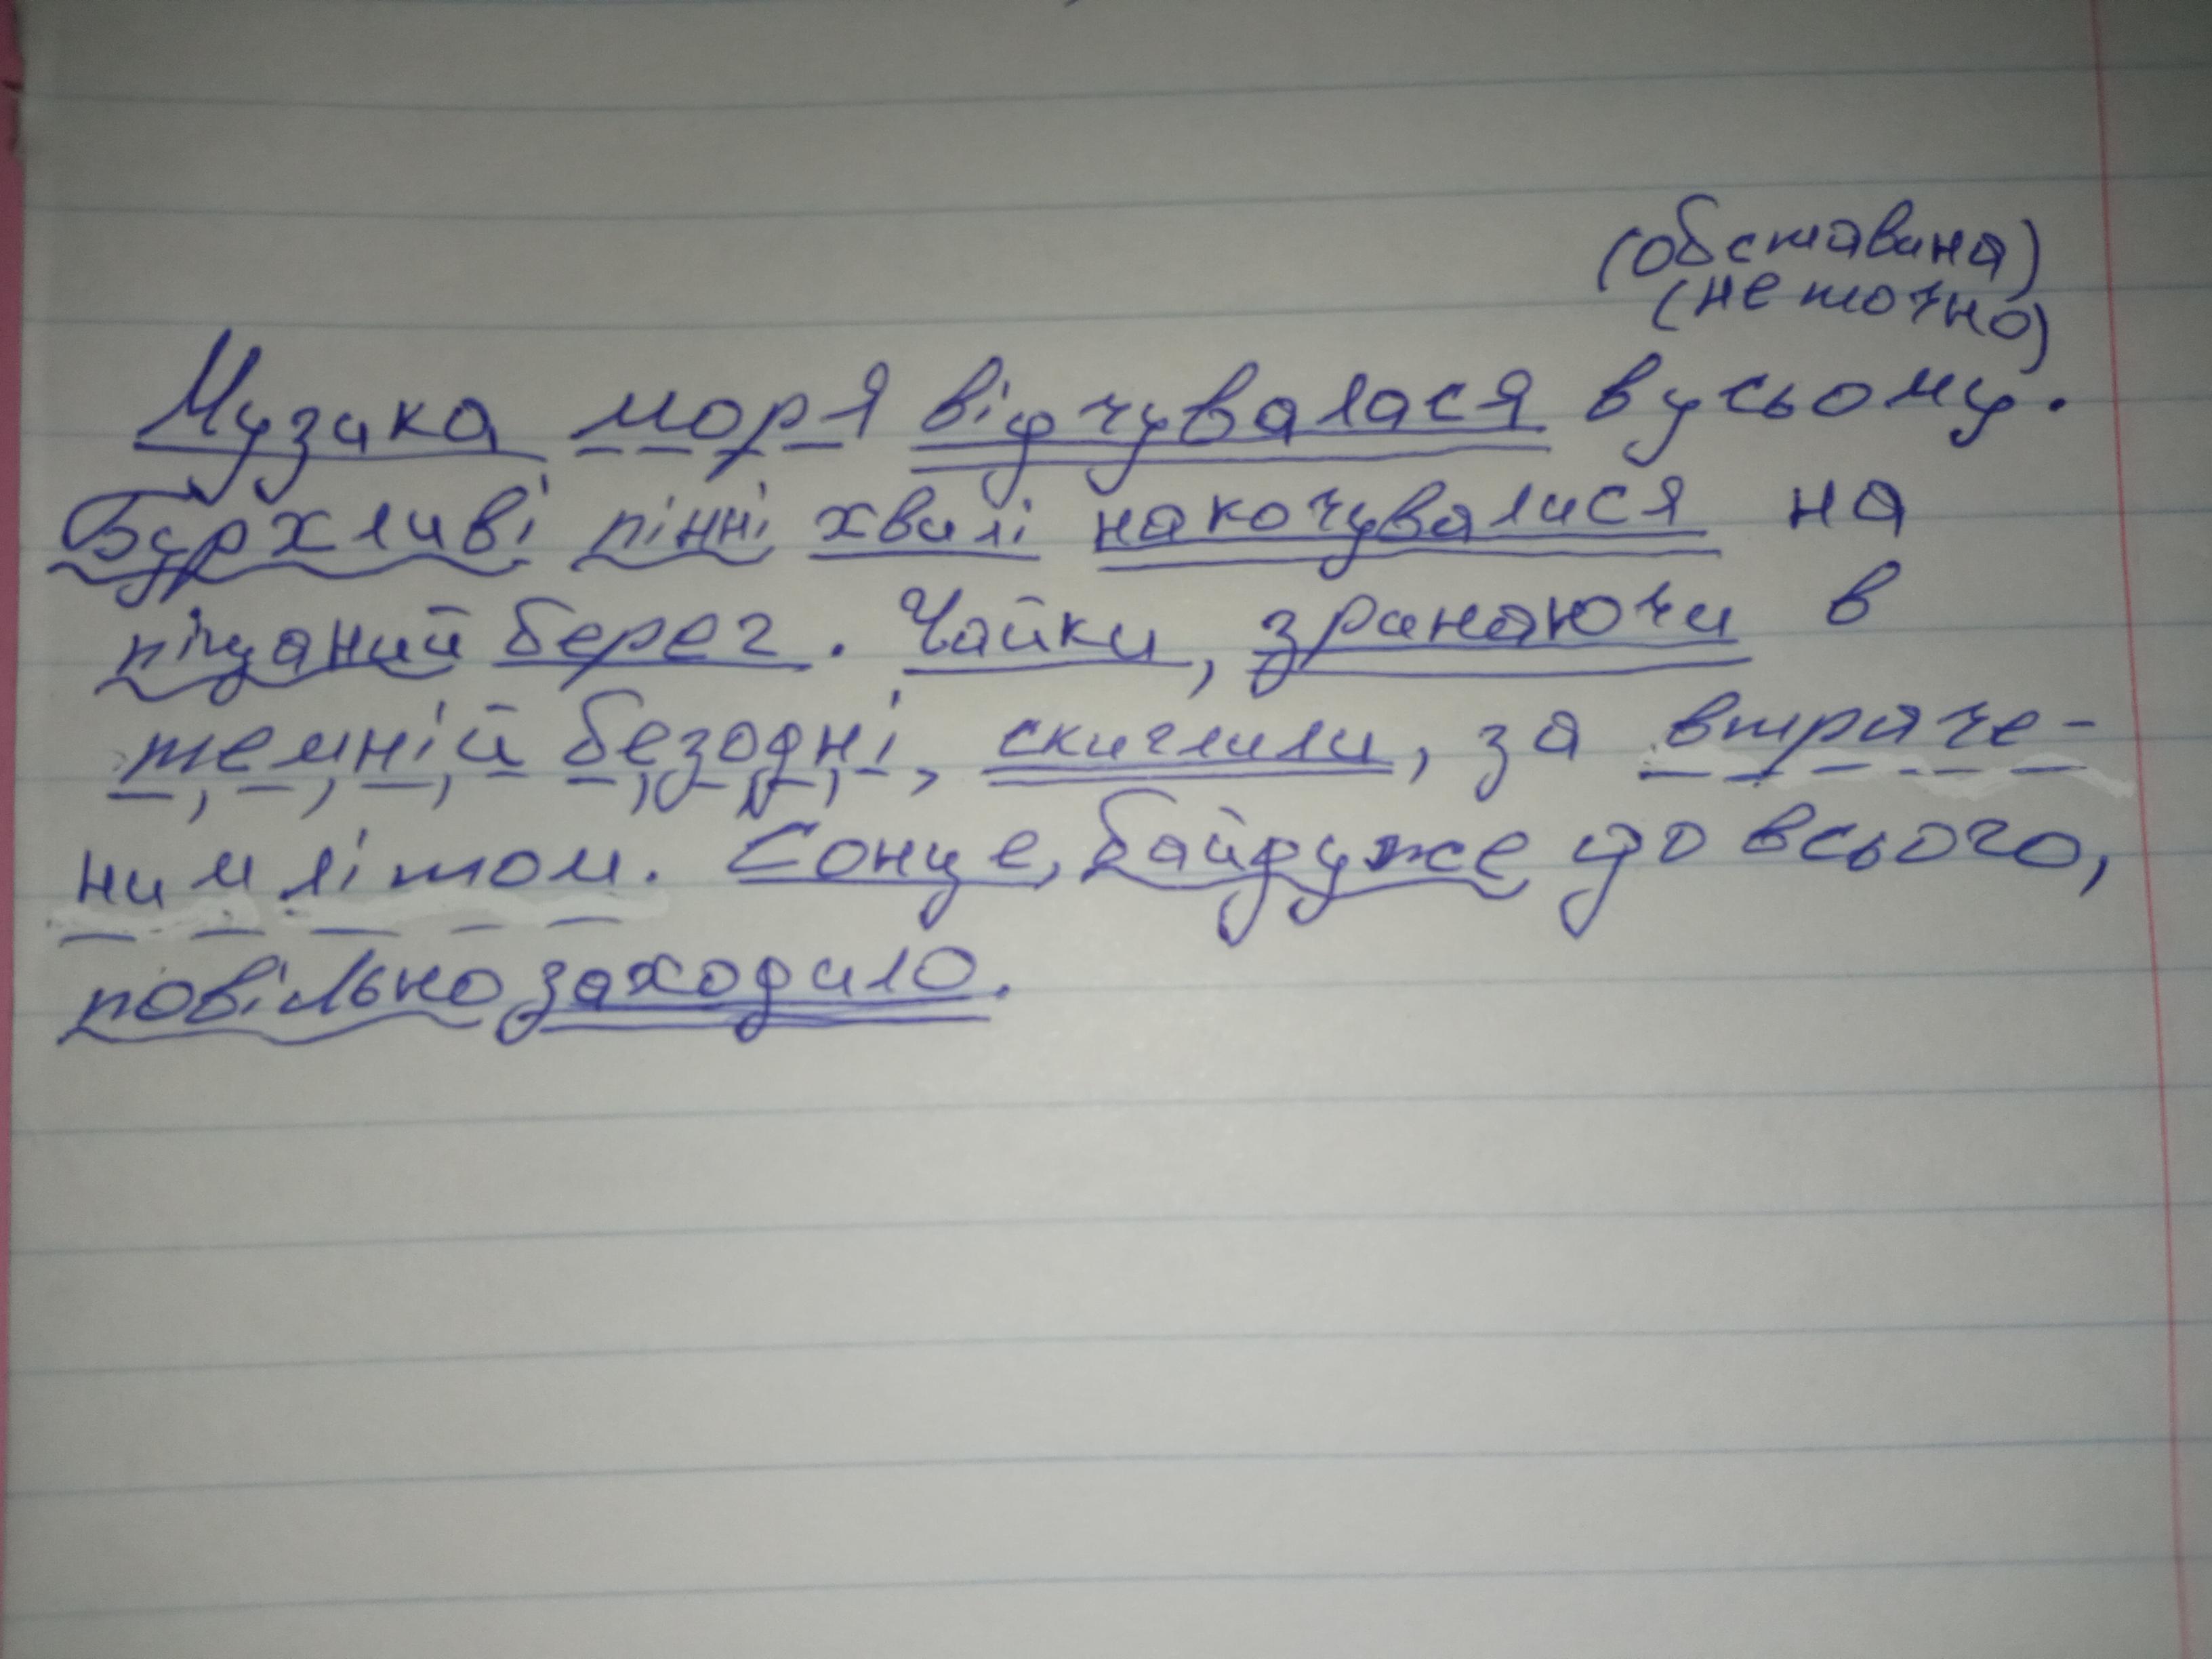 (обставина)
(не точно)
Музика моря відчувалася в усьому.
Бурхливі пінні хвилі накочувалися на
піщаний берег. Чайки, зринаючи в
темній безодні, скиглили, за втраче-
ним літом. Сонце, байдуже до всього,
повільно заходило.